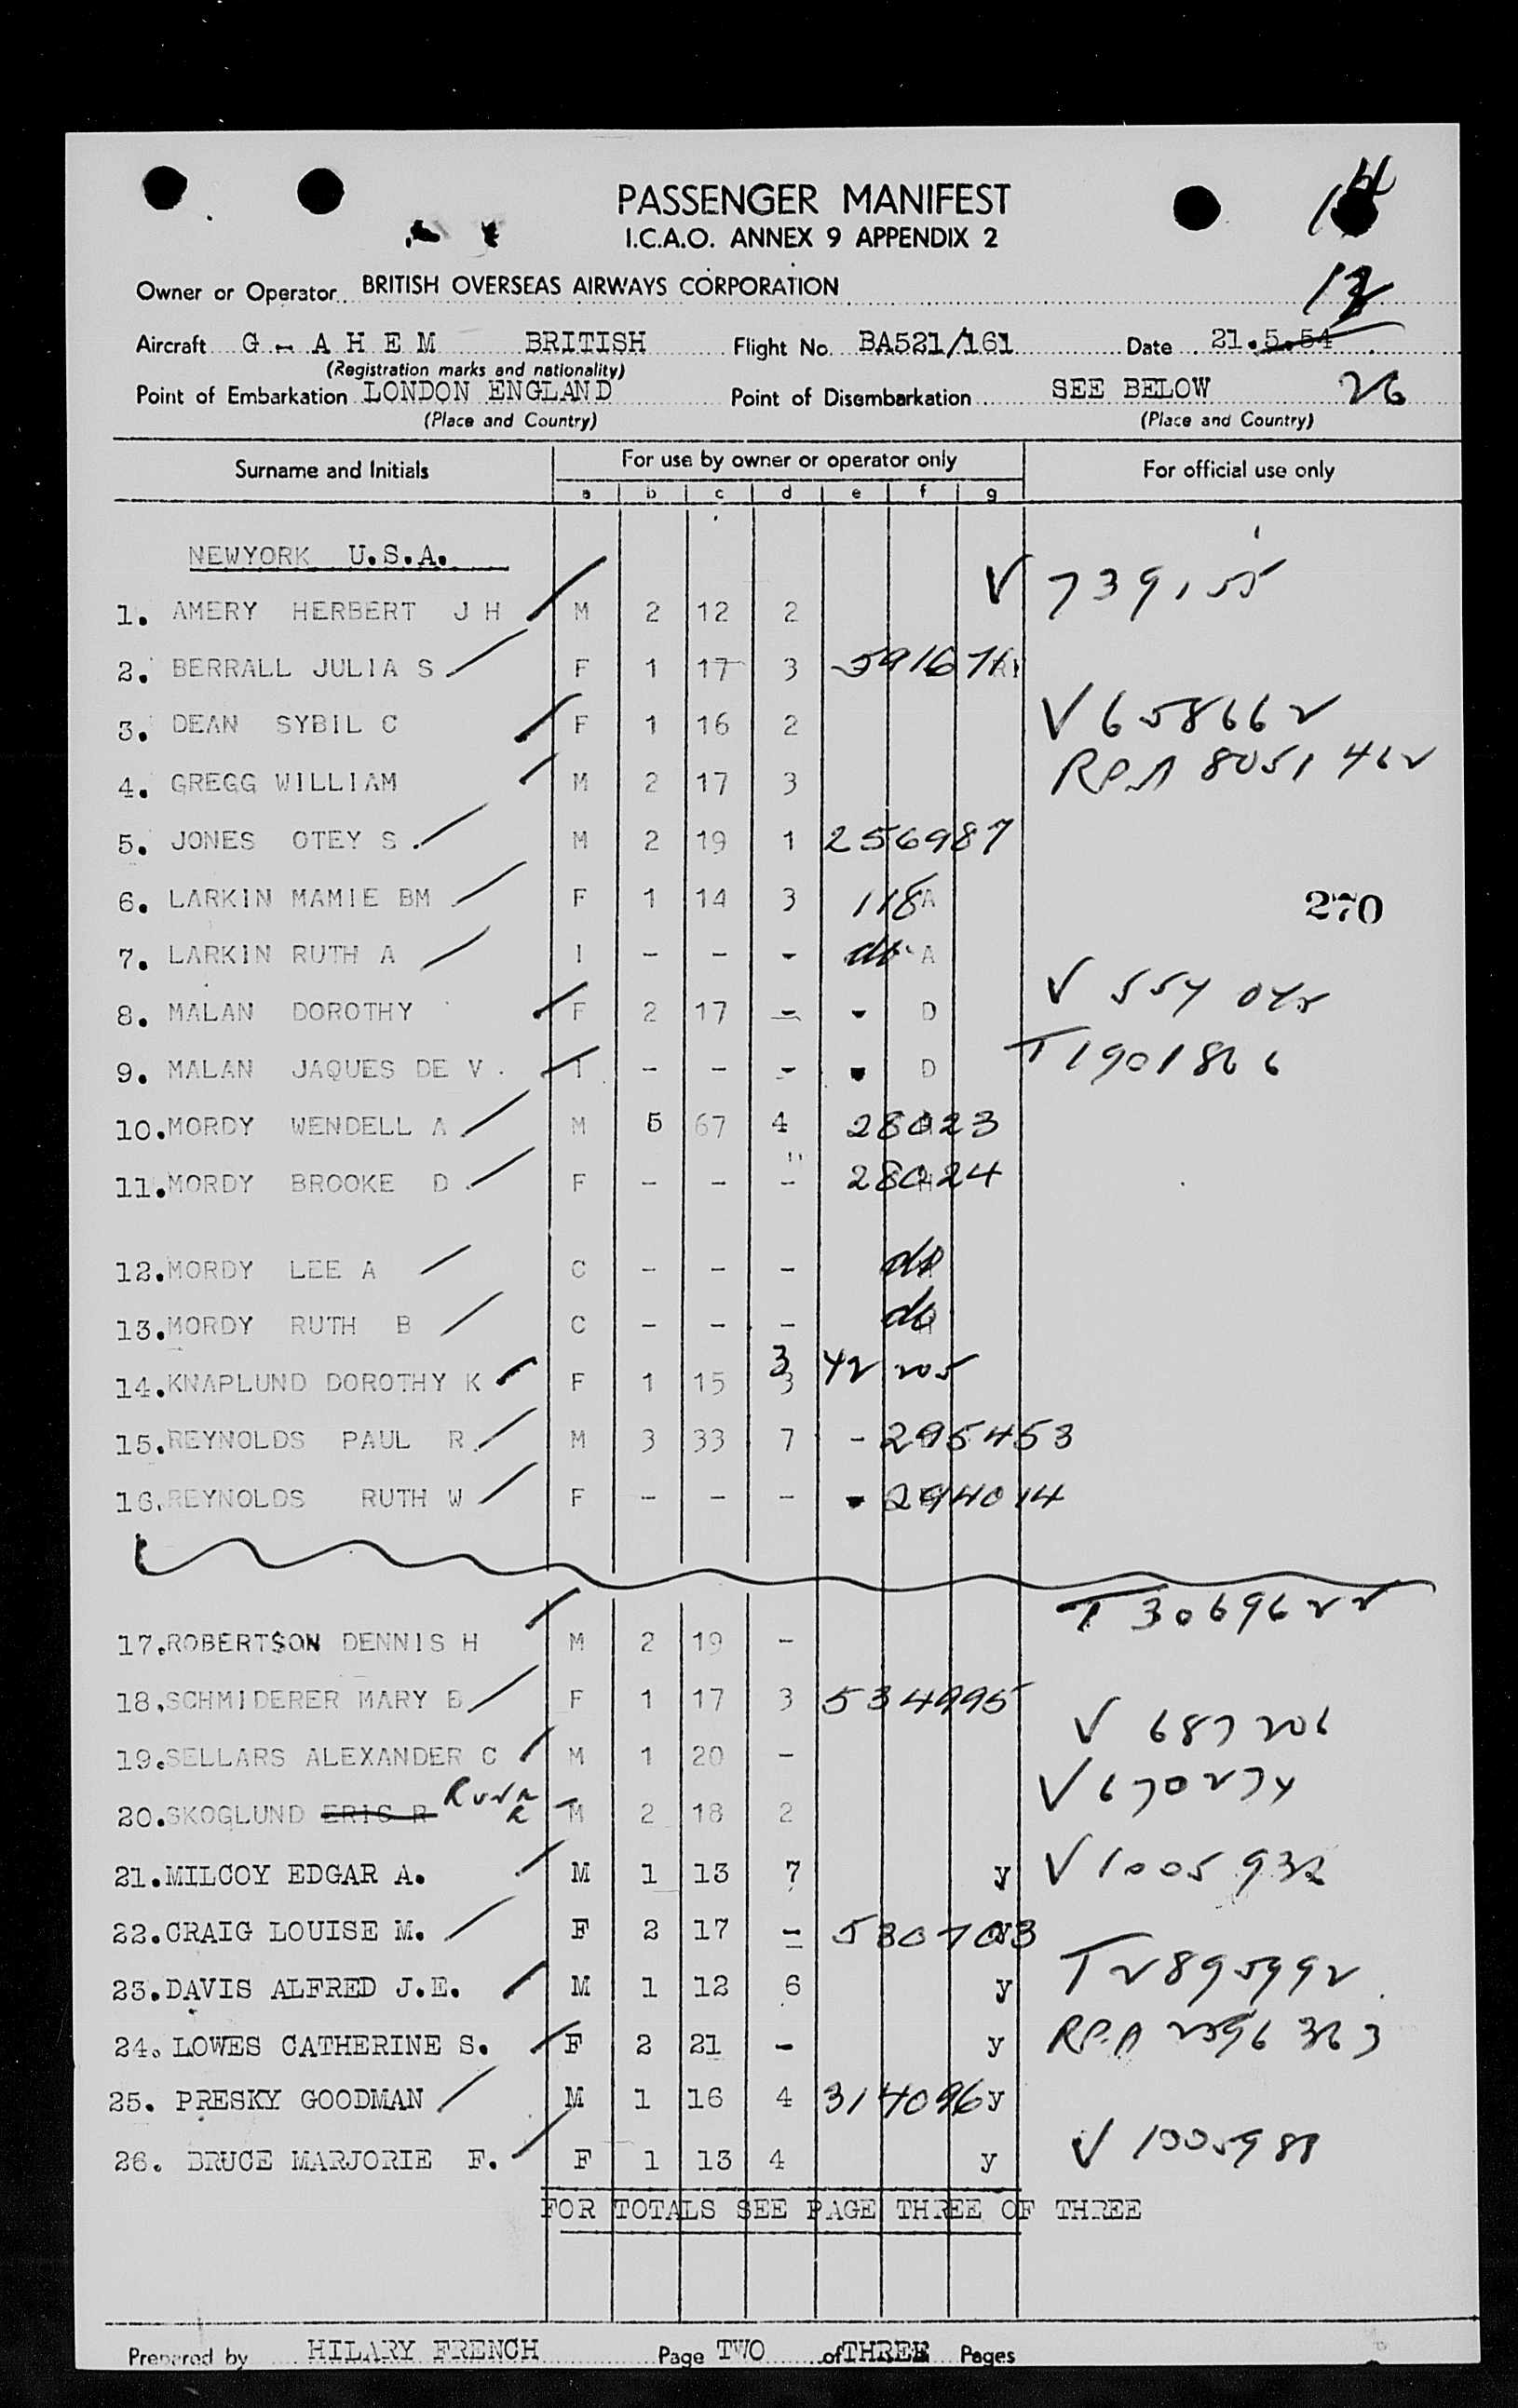 14
PASSENGER MANIFEST
I.C.A.O. ANNEX 9 APPENDIX 2
12
Owner or Operator BRITISH OVERSEAS AIRWAYS CORPORATION
Aircraft G - A H E M BRITISH Flight No. BA521/161 Date 21.5.54
(Registration marks and nationality)
Point of Embarkation LONDON ENGLAND Point of Disembarkation SEE BELOW 26
(Place and Country) (Place and Country)
Surname and Initials For use by owner or operator only For official use only
a b c d e f g
NEWYORK U.S.A.
1. AMERY HERBERT J H M 2 12 2 V 739155
2. BERRALL JULIA S F 1 17 3 591671
3. DEAN SYBIL C F 1 16 2 V 658662
4. GREGG WILLIAM M 2 17 3 RPA 8051462
5. JONES OTEY S. M 2 19 1 256987
6. LARKIN MAMIE BM F 1 14 3 118 A 270
7. LARKIN RUTH A I - - - do A
8. MALAN DOROTHY F 2 17 - - D V 554 042
9. MALAN JAQUES DE V. I - - - - D T 1901866
10. MORDY WENDELL A M 5 67 4 28023
11. MORDY BROOKE D F - - - 28024
12. MORDY LEE A C - - - do
13. MORDY RUTH B C - - - do
14. KNAPLUND DOROTHY K F 1 15 3 3 42205
15. REYNOLDS PAUL R. M 3 33 7 - 295453
16. REYNOLDS RUTH W F - - - - 294014
17. ROBERTSON DENNIS H M 2 19 - T 3069622
18. SCHMIDERER MARY B F 1 17 3 534995
19. SELLARS ALEXANDER C M 1 20 - V 687206
20. SKOGLUND ERIC R M 2 18 2 V 670274
21. MILCOY EDGAR A. M 1 13 7 y V 1005932
22. CRAIG LOUISE M. F 2 17 - 530703
23. DAVIS ALFRED J.E. M 1 12 6 y T 2895992
24. LOWES CATHERINE S. F 2 21 - y RPA 2396323
25. PRESKY GOODMAN M 1 16 4 314096 y
26. BRUCE MARJORIE F. F 1 13 4 y V 1005988
FOR TOTALS SEE PAGE THREE OF THREE
Prepared by HILARY FRENCH Page TWO of THREE Pages